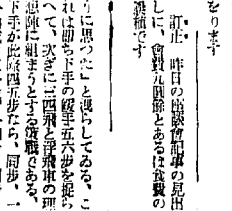 をります
訂正　昨日の座談會記事の見出
しに、會費九圓餘とあるは食費の
誤植です
うに思つた」と洩らしてゐる、こ
れは即ち下手の緩手五六歩を捉ら
へて、次ぎに三四飛と浮飛車の理
想陣に組まうとする作戰である、
下手が此際四五歩なら、同歩、一